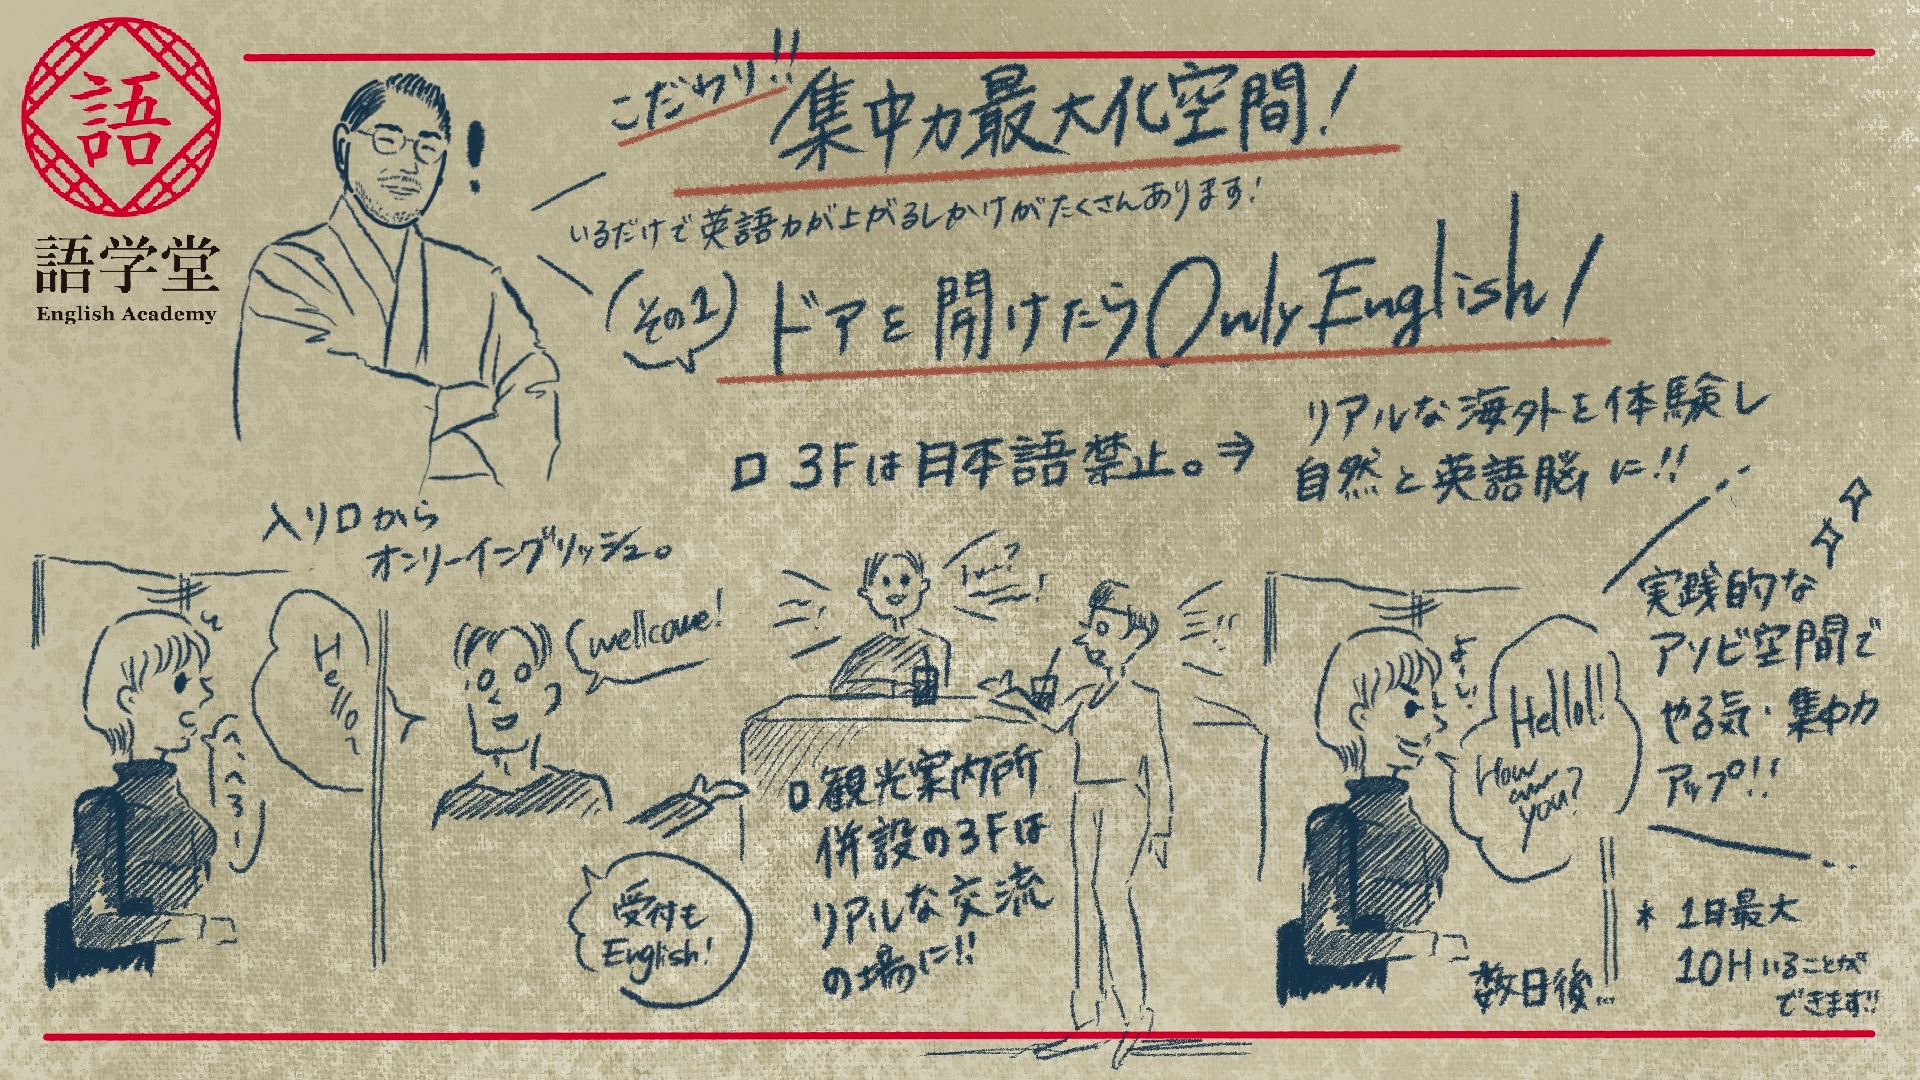 語
語学堂
English Academy
こだわり!!
集中力最大化空間!
いるだけで英語力が上がるしかけがたくさんあります!
その1
ドアを開けたらOnly English!
ロ 3Fは日本語禁止。⇒
リアルな海外を体験し
自然と英語脳に!!
入り口から
オンリーイングリッシュ。
Hello〜
へ、へろー
wellcome!
受付も
English!
ロ観光案内所
併設の3Fは
リアルな交流
の場に!!
よーい
Hello!!
How
are
you?
数日後…
実践的な
アソビ空間で
やる気・集中力
アップ!!
* 1日最大
10Hいることが
できます!!